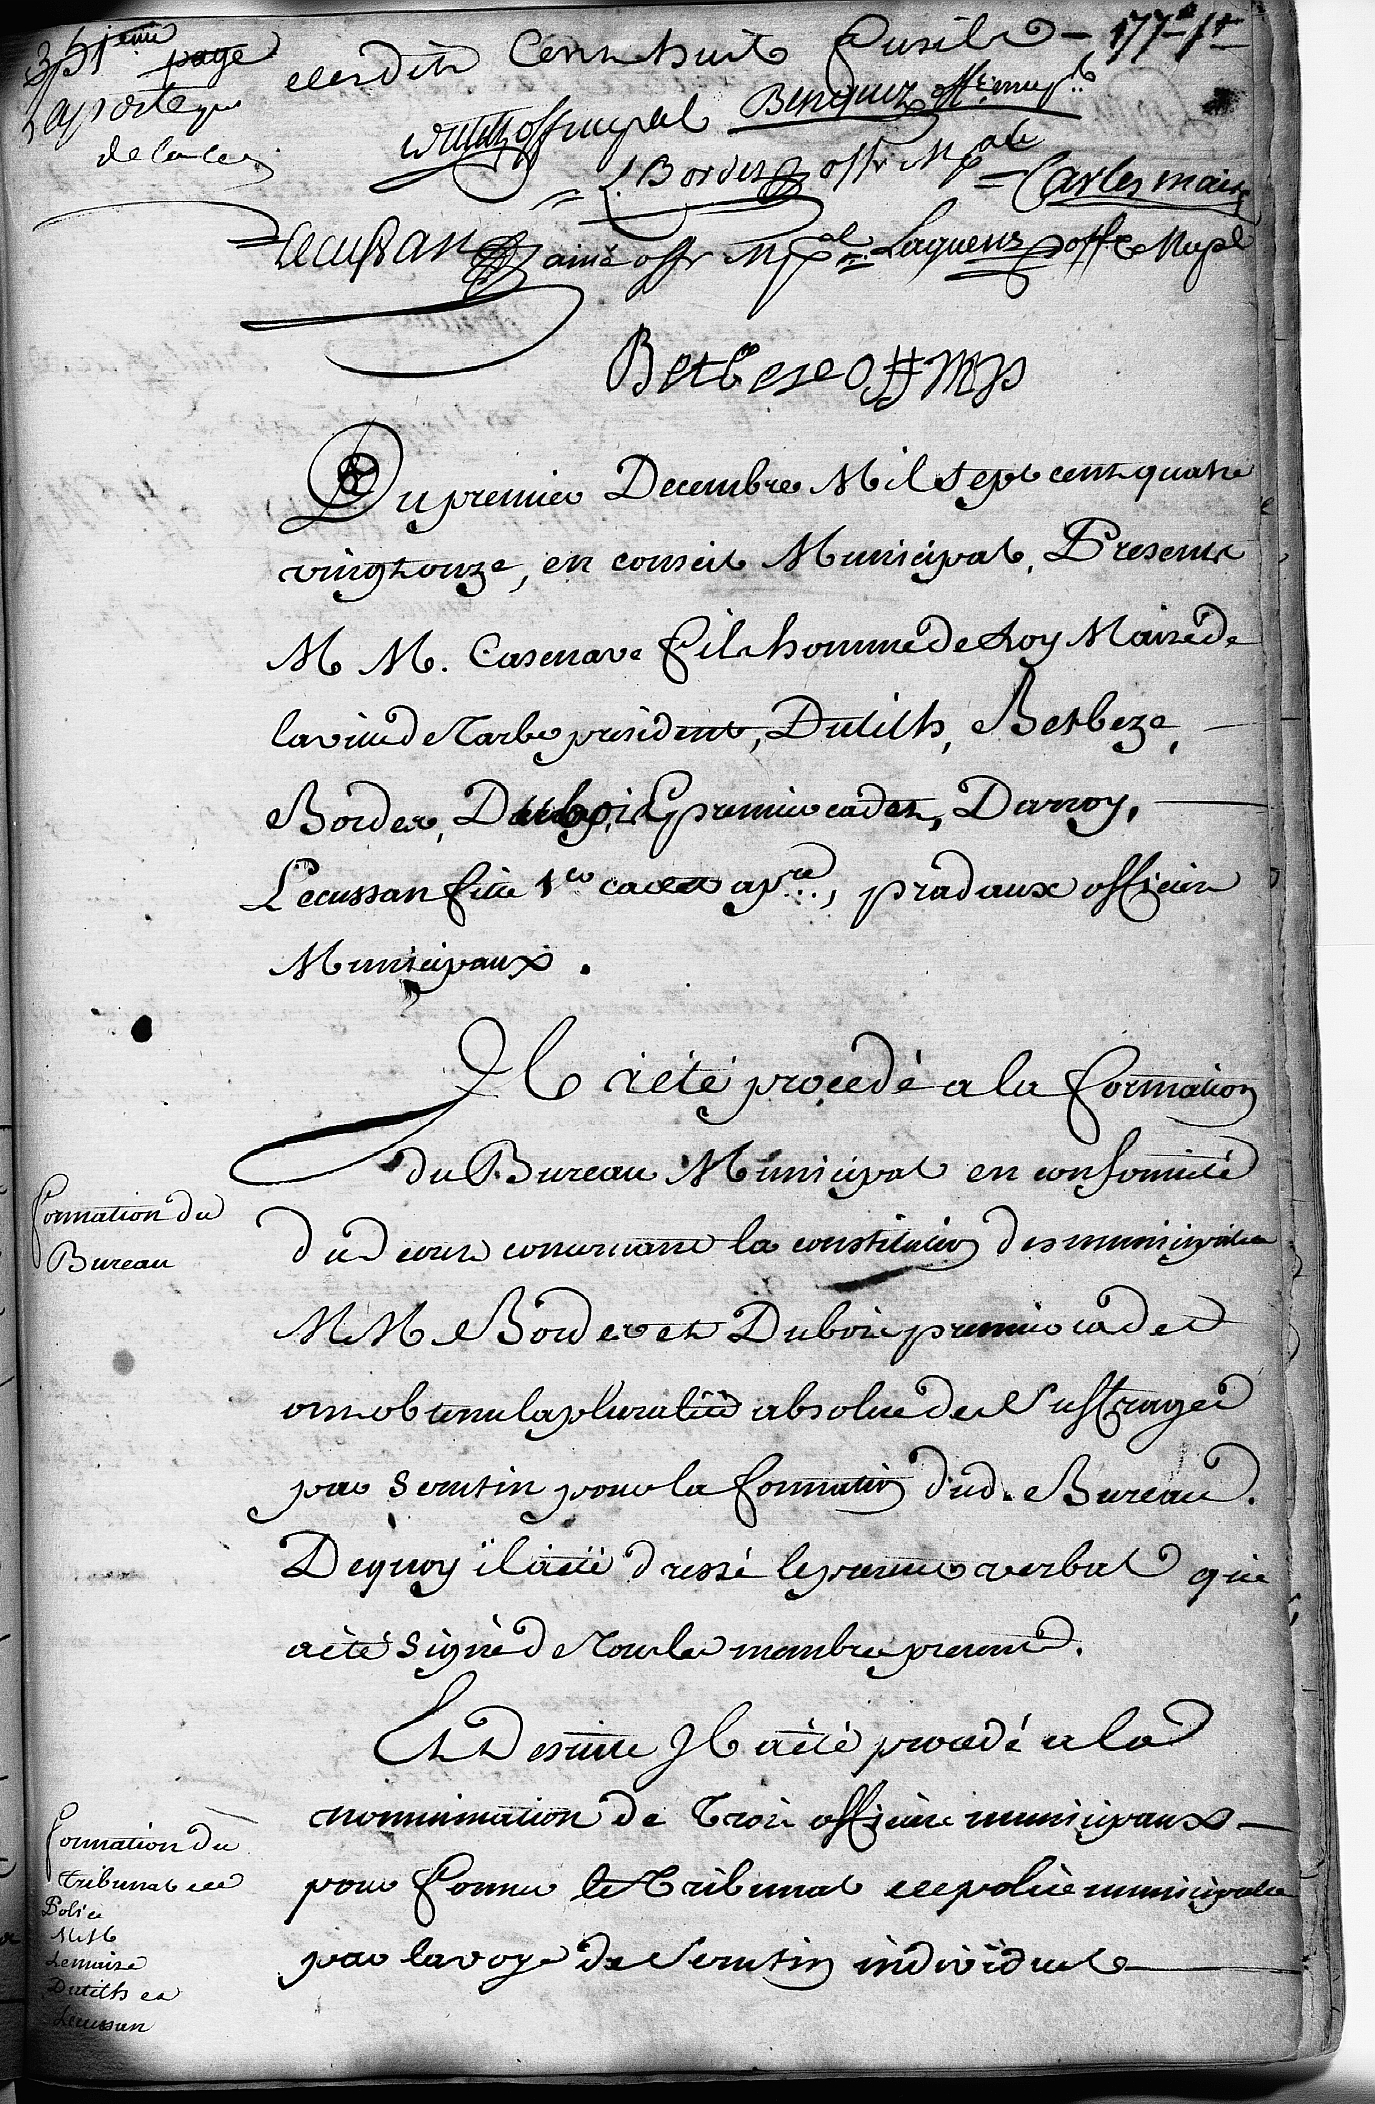 351ieme page
desdits Cent huit fusils - 177
Dutilh off mupal Benquez offe. mup.
L. Bordes offr Mpal = Carles maire
Lecussan ainé offr Mpal Laguens offe Mupal
Betbese Off Mp
Du premier Decembre Mil Sept cent quatre
vingt onze, en conseil Municipal, Presents
M M. Casenave fils homme de Loy Maire de
la ville de Tarbe president, Dutilh, Betbeze,
Bordes, Dubois premier cadet, Darroy,
Lecussan fille 1er cadet apre., pradaux officiers
Municipaux.
Il a été procedé a la formation
du Bureau Municipal en conformité
du decret concernant la constitution des municipalites
M M Bordes et Dubois premier cadet
ont obtenu la pluralité absolue des Suffrages
par Scrutin pour la formation dud. Bureau.
Dequoy il a été dressé le present verbal qui
a été Signé de Tous les membres presents.
Et De suite Il a été procedé a la
nommination de trois officiers municipaux
pour former le Tribunal de police municipale
par la voye de Scrutin individuel
Formation du
Bureau
Formation du
tribunal de
Police
M M
Lemaire
Dutilh et
Lecussan